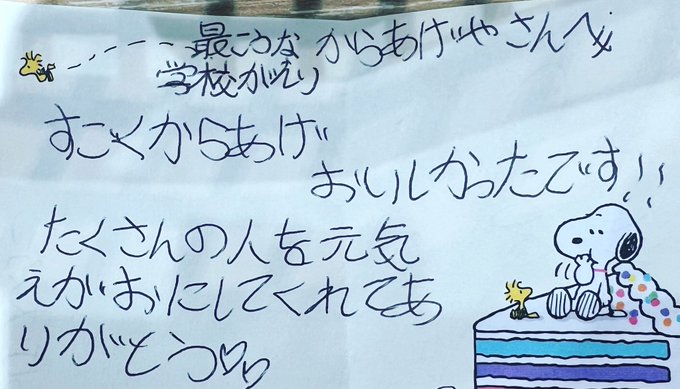 最こうな からあげやさんへ
学校がえり
すごくからあげ
おいしかったです!!
たくさんの人を元気
えがおにしてくれてあ
りがとう♡♡